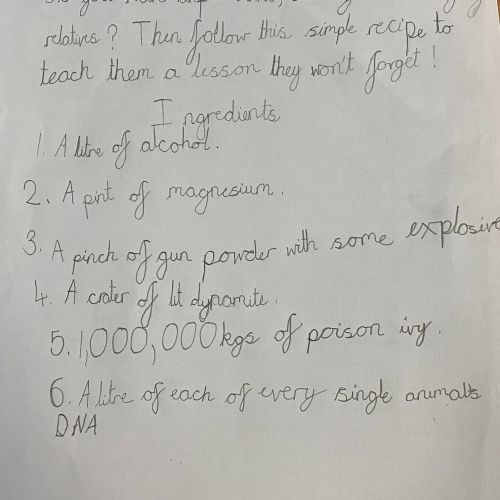 relativs? Then follow this simple recipe to
teach them a lesson they won't forget!
Ingredients
1. A litre of alcohol.
2. A pint of magnesium.
3. A pinch of gun powder with some explosive
4. A crater of lit dynamite.
5. 1,000,000kgs of poison ivy.
6. A litre of each of every single animals
DNA